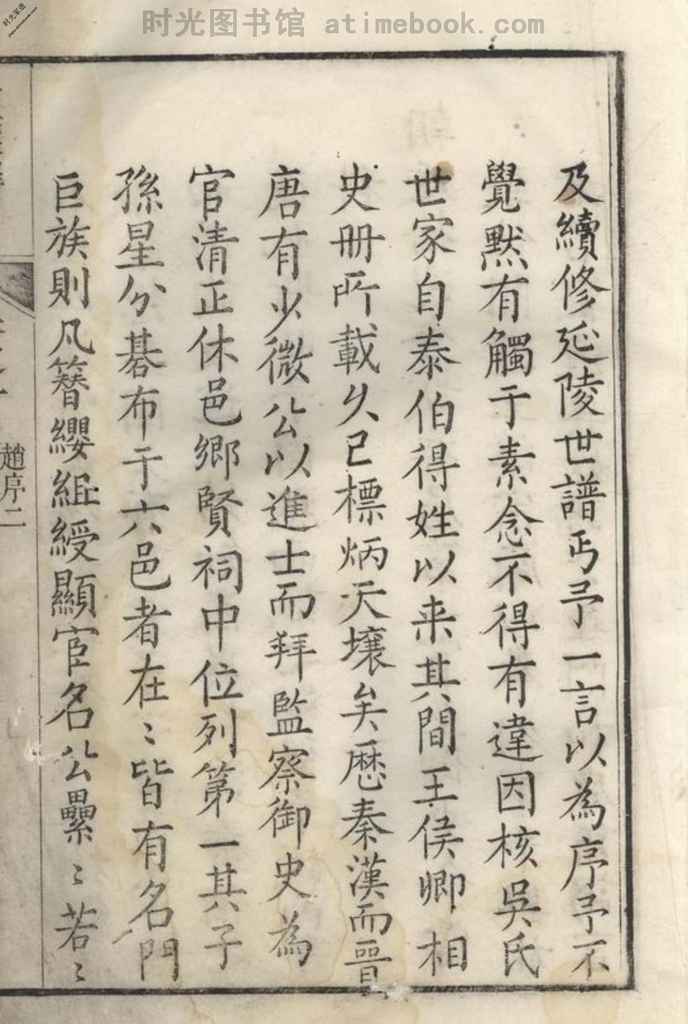 时光图书馆 atimebook.com
及續修延陵世譜丐予一言以為序予不
覺默有觸于素念不得有違因核吳氏
世家自泰伯得姓以来其間王侯卿相
史冊所載久已標炳天壤矣歷秦漢而晉
唐有少微公以進士而拜監察御史為
官清正休邑鄉賢祠中位列第一其子
孫星分碁布于六邑者在〻皆有名門
巨族則凡簪纓組綬顯宦名公纍〻若〻
趙序二